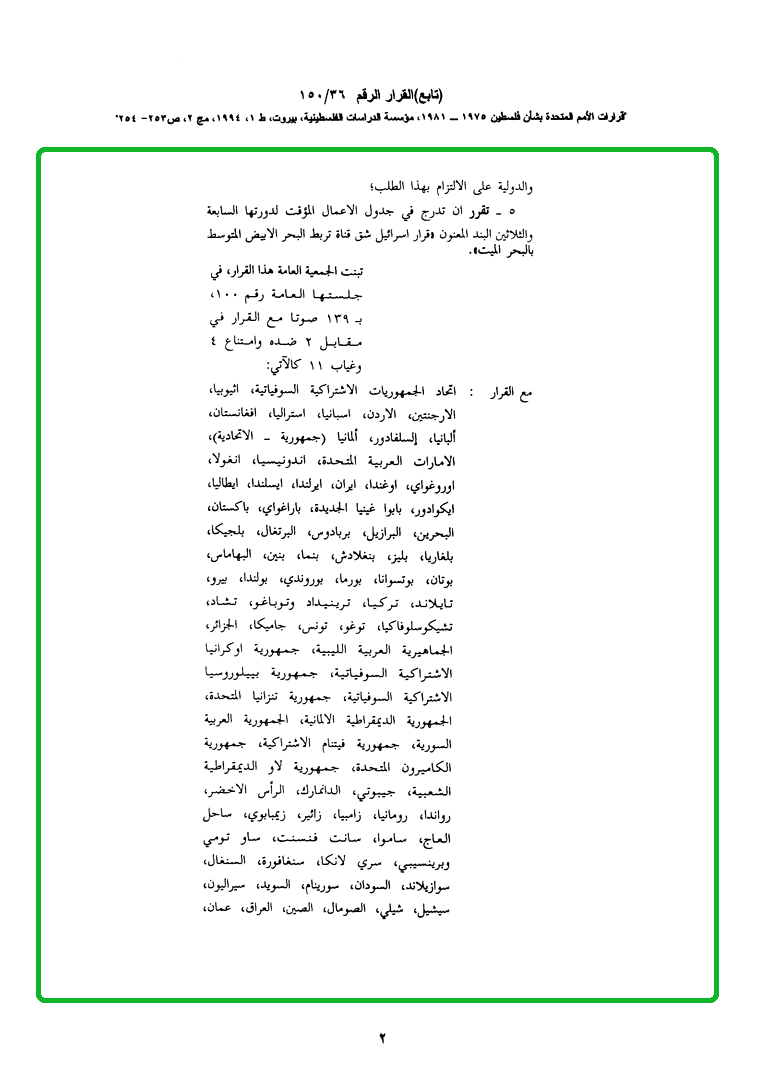 (تابع)القرار الرقم ١٥٠/٣٦
"قرارات الأمم المتحدة بشأن فلسطين ١٩٧٥ – ١٩٨١، مؤسسة الدراسات الفلسطينية، بيروت، ط ١، ١٩٩٤، مج ٢، ص٢٥٣- ٢٥٤"
والدولية على الالتزام بهذا الطلب؛
٥ ـ تقرر ان تدرج في جدول الاعمال المؤقت لدورتها السابعة
والثلاثين البند المعنون «قرار اسرائيل شق قناة تربط البحر الابيض المتوسط
بالبحر الميت».
تبنت الجمعية العامة هذا القرار، في
جلستها العامة رقم ١٠٠،
بـ ١٣٩ صوتا مع القرار في
مقابل ٢ ضده وامتناع ٤
وغياب ١١ كالآتي:
مع القرار : اتحاد الجمهوريات الاشتراكية السوفياتية، اثيوبيا،
الارجنتين، الاردن، اسبانيا، استراليا، افغانستان،
ألبانيا، إلسلفادور، ألمانيا (جمهورية ـ الاتحادية)،
الامارات العربية المتحدة، اندونيسيا، انغولا،
اوروغواي، اوغندا، ايران، ايرلندا، ايسلندا، ايطاليا،
ايكوادور، بابوا غينيا الجديدة، باراغواي، باكستان،
البحرين، البرازيل، بربادوس، البرتغال، بلجيكا،
بلغاريا، بليز، بنغلادش، بنما، بنين، البهاماس،
بوتان، بوتسوانا، بورما، بوروندي، بولندا، بيرو،
تايلاند، تركيا، ترينيداد وتوباغو، تشاد،
تشيكوسلوفاكيا، توغو، تونس، جاميكا، الجزائر،
الجماهيرية العربية الليبية، جمهورية اوكرانيا
الاشتراكية السوفياتية، جمهورية بييلوروسيا
الاشتراكية السوفياتية، جمهورية تنزانيا المتحدة،
الجمهورية الديمقراطية الالمانية، الجمهورية العربية
السورية، جمهورية فيتنام الاشتراكية، جمهورية
الكاميرون المتحدة، جمهورية لاو الديمقراطية
الشعبية، جيبوتي، الدانمارك، الرأس الاخضر،
رواندا، رومانيا، زامبيا، زائير، زيمبابوي، ساحل
العاج، ساموا، سانت فنسنت، ساو تومي
وبرينسيبي، سري لانكا، سنغافورة، السنغال،
سوازيلاند، السودان، سورينام، السويد، سيراليون،
سيشيل، شيلي، الصومال، الصين، العراق، عمان،
٢